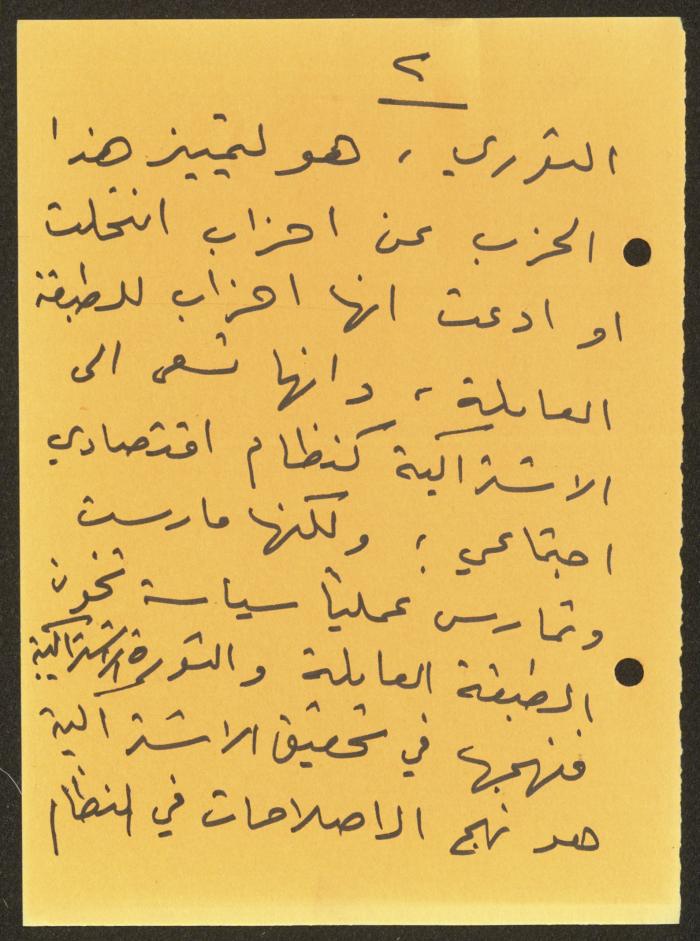 ٢
الثوري ، هو لتمييز هذا
الحزب عن احزاب انتحلت
او ادعت انها احزاب للطبقة
العاملة ، وانها تسعى الى
الاشتراكية كنظام اقتصادي
اجتماعي ؛ ولكنها مارست
وتمارس عملياً سياسة تخون
الطبقة العاملة والثورة الاشتراكية
فنهجها في تحقيق الاشتراكية
هو نهج الاصلاحات في النظام